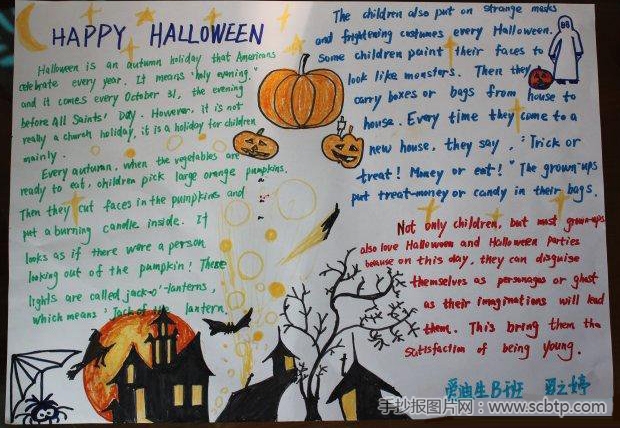 HAPPY HALLOWEEN
Halloween is an autumn holiday that Americans
celebrate every year. It means "holy evening,"
and it comes every October 31, the evening
before All Saints' Day. However, it is not
really a church holiday, it is a holiday for children
mainly.
Every autumn, when the vegetables are
ready to eat, children pick large orange pumpkins.
Then they cut faces in the pumpkins and
put a burning candle inside. It
looks as if there were a person
looking out of the pumpkin! These
lights are called jack-o'-lanterns,
which means "Jack of the lantern
The children also put on strange masks
and frightening costumes every Halloween.
Some children paint their faces to
look like monsters. Then they
carry boxes or bags from house to
house. Every time they come to a
new house, they say, "Trick or
treat! Money or eat!" The grown-ups
put treat-money or candy in their bags.
Not only children, but most grown-ups
also love Halloween and Halloween parties
because on this day, they can disguise
themselves as personages or ghost
as their imaginations will lead
them. This bring them the
satisfaction of being young.
爱迪生B班
手抄报图片网:www.scbtp.com